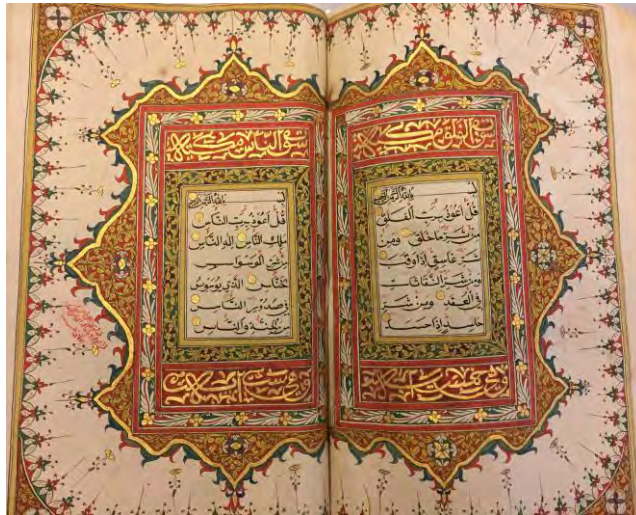 سورة الفلق مكية
بسم الله الرحمن الرحيم
قُلْ أَعُوذُ بِرَبِّ الْفَلَقِ
مِنْ شَرِّ مَا خَلَقَ وَمِنْ
شَرِّ غَاسِقٍ إِذَا وَقَبَ
وَمِنْ شَرِّ النَّفَّاثَاتِ
فِي الْعُقَدِ وَمِنْ شَرِّ
حَاسِدٍ إِذَا حَسَدَ
سورة الناس مكية
بسم الله الرحمن الرحيم
قُلْ أَعُوذُ بِرَبِّ النَّاسِ
مَلِكِ النَّاسِ إِلَهِ النَّاسِ
مِنْ شَرِّ الْوَسْوَاسِ
الْخَنَّاسِ الَّذِي يُوَسْوِسُ
فِي صُدُورِ النَّاسِ
مِنَ الْجِنَّةِ وَالنَّاسِ